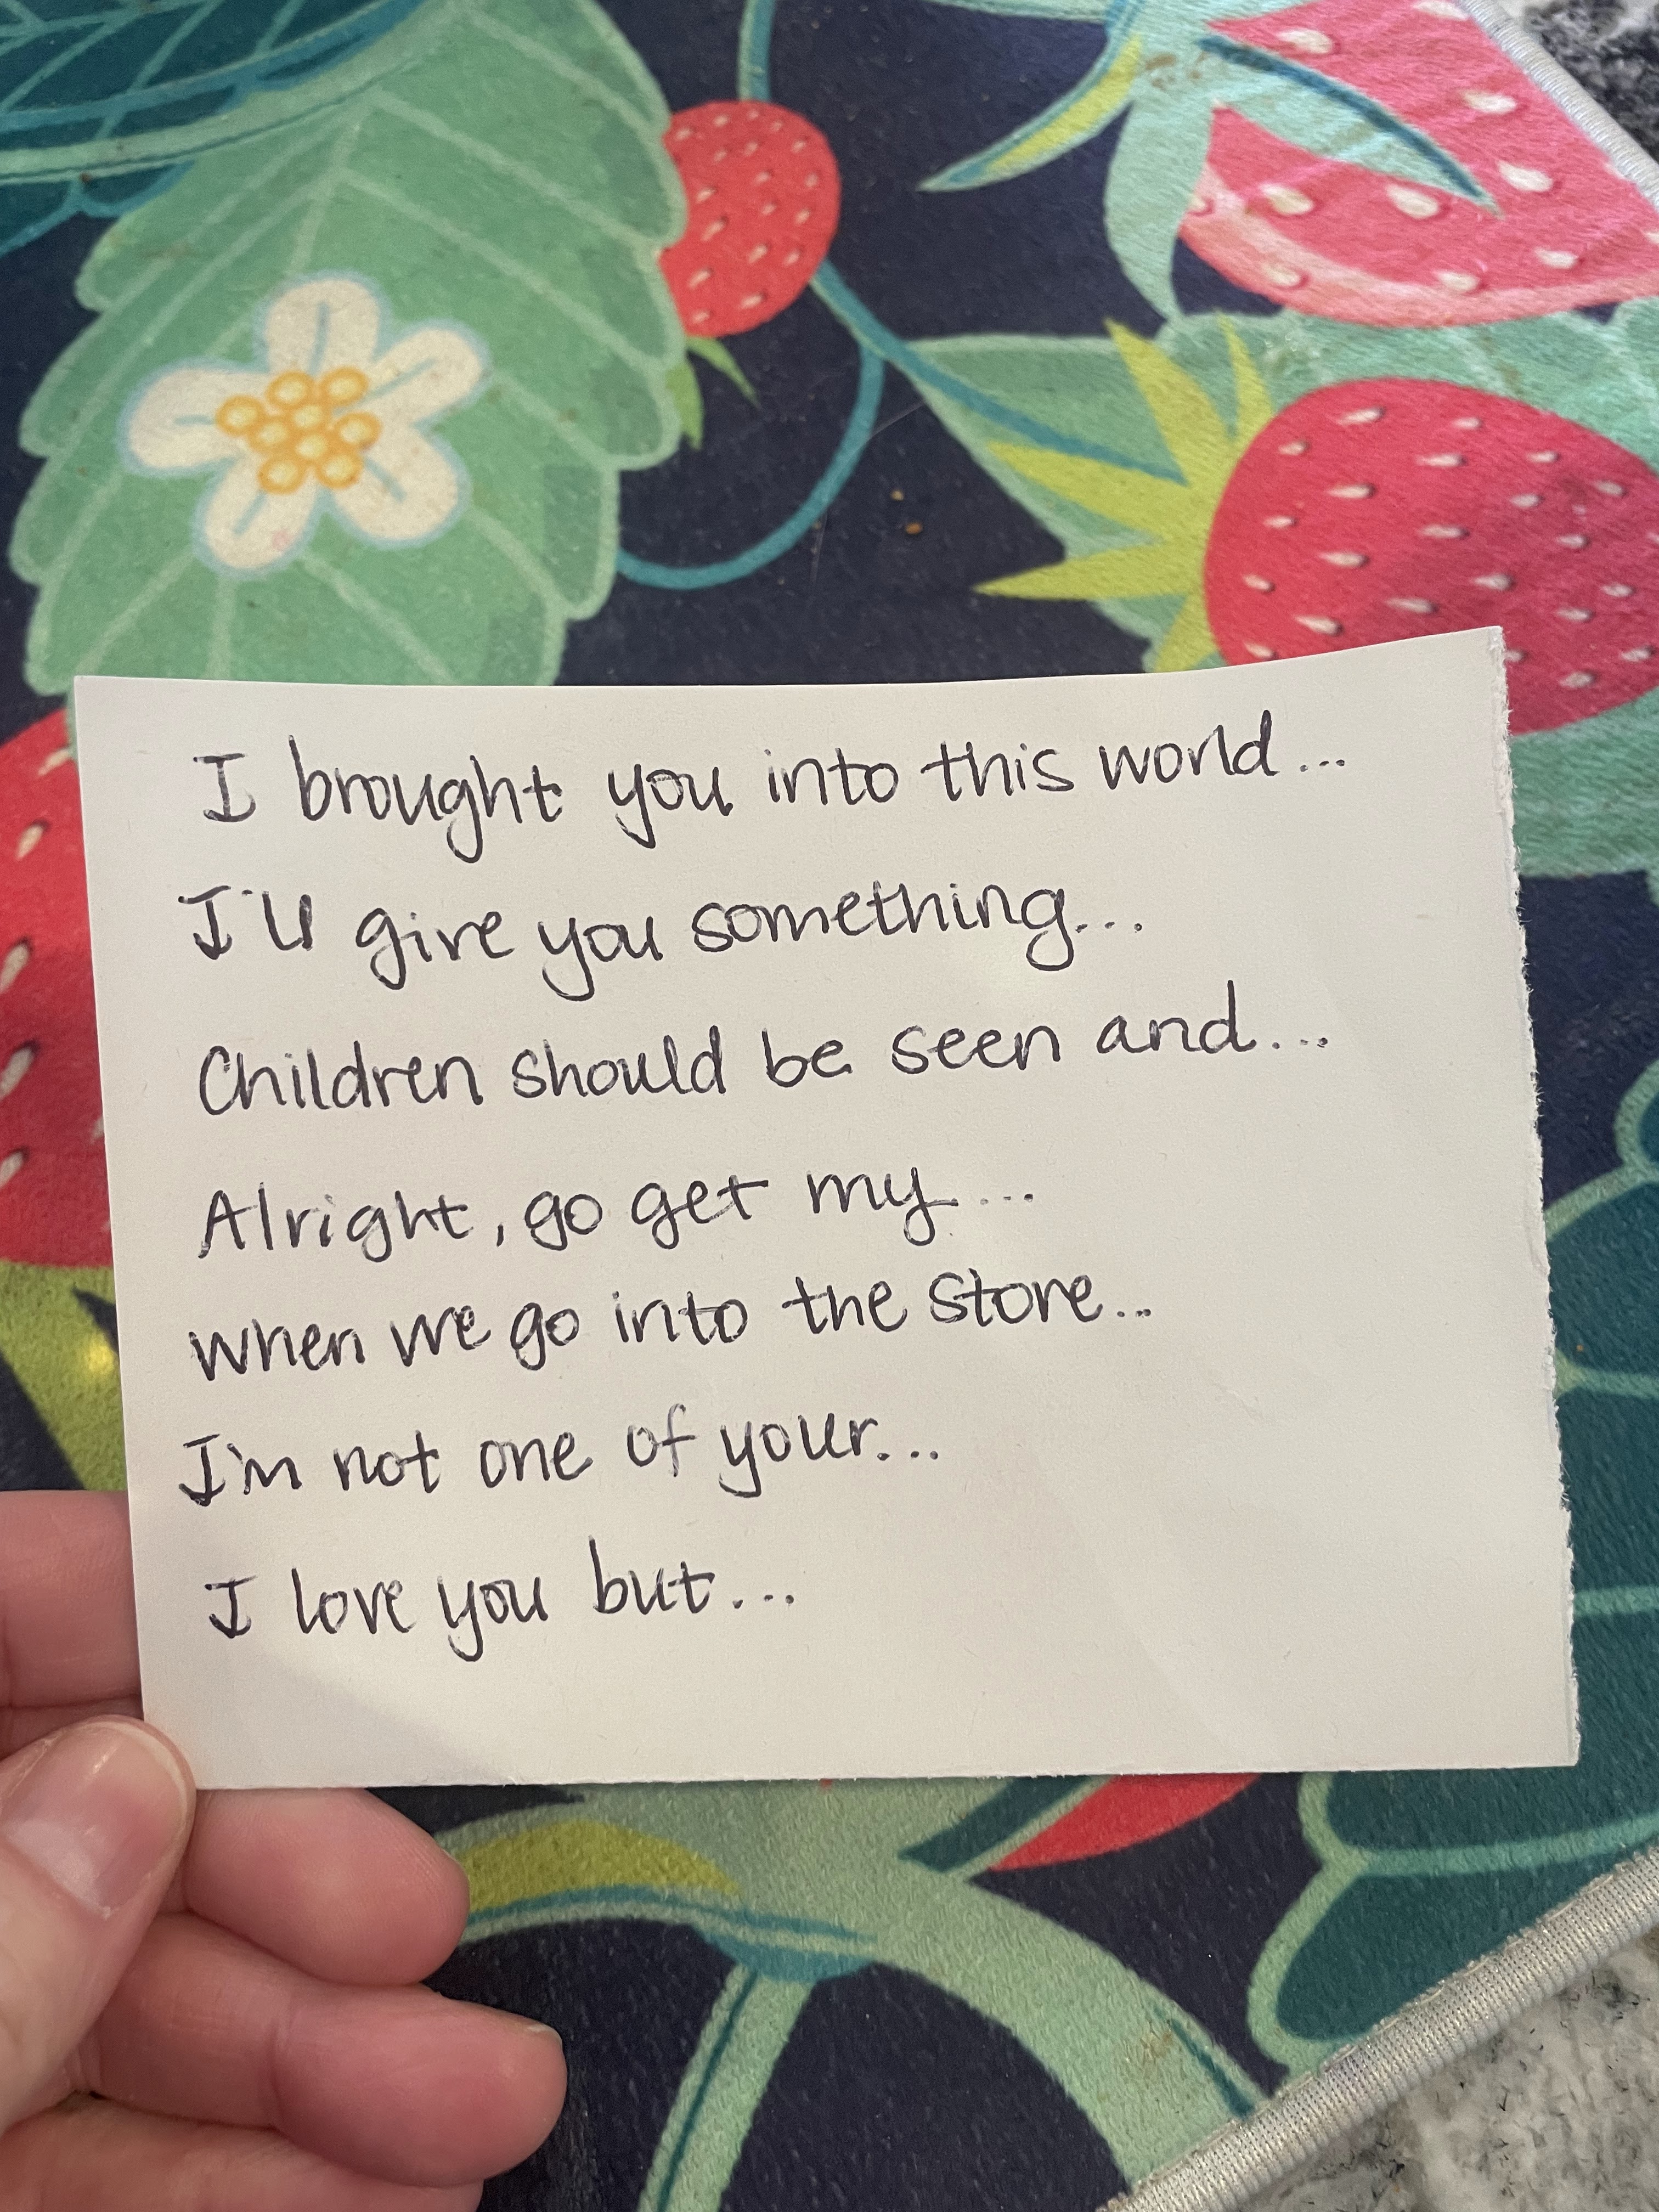 I brought you into this world...
I'll give you something...
Children should be seen and...
Alright, go get my...
when we go into the store...
I'm not one of your...
I love you but...